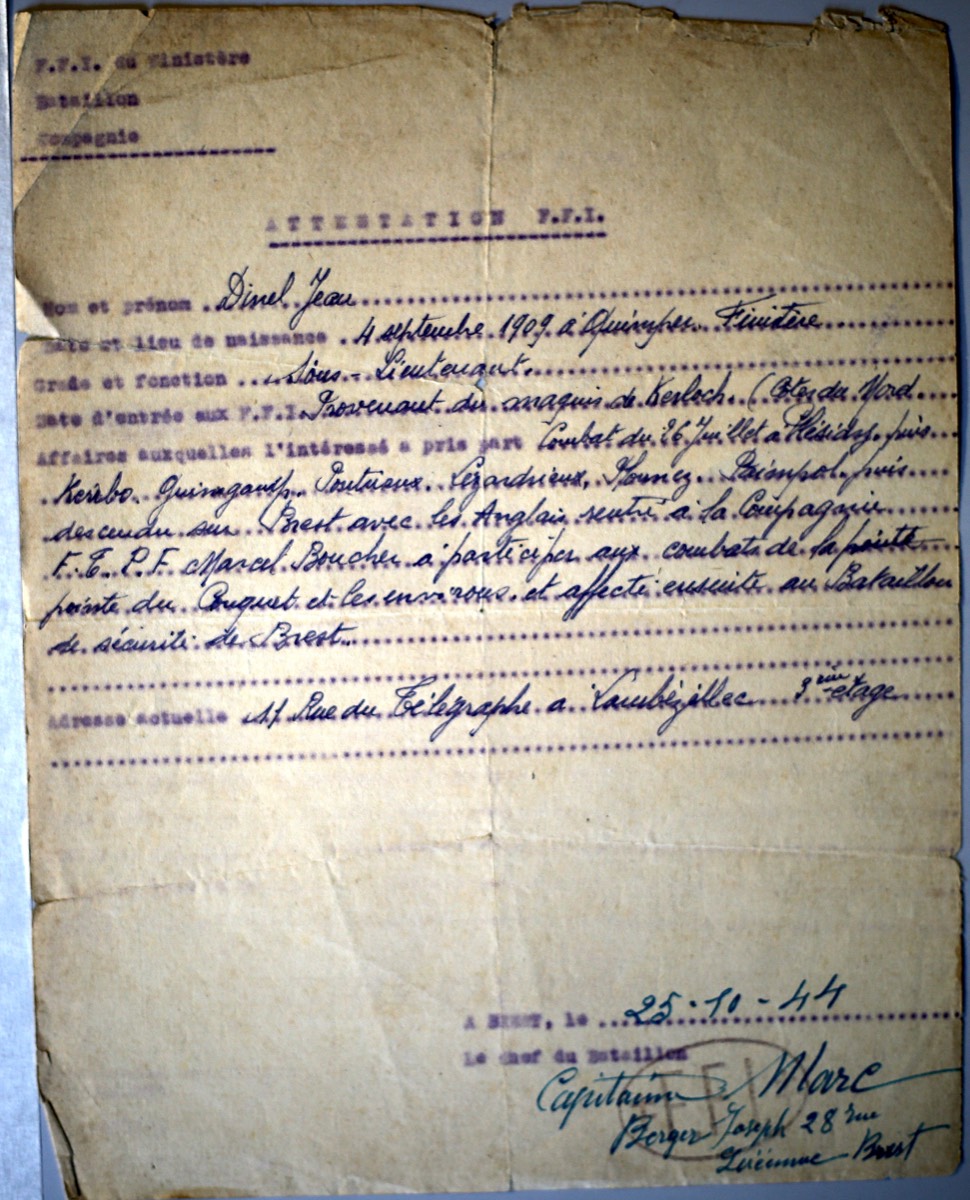 F.F.I. du Finistère
Bataillon
Compagnie
ATTESTATION F.F.I.
Nom et prénom Dinel Jean
Date et lieu de naissance 4 septembre 1909 à Quimper Finistère
Grade et fonction Sous-Lieutenant.
Date d'entrée aux F.F.I. Provenant du maquis de Kerloch. (Côtes du Nord
Affaires auxquelles l'intéressé a pris part Combat du 26 Juillet a Plésidy. puis
Guingamp. Pontrieux. Lézardrieux. Paimpol. puis
descendu sur Brest avec les Anglais rentré à la Compagnie
F.T.P.F. Marcel Boucher a participer aux combats de la pointe
pointe du Conquet et les environs. et affecté ensuite au Bataillon
de sécurité de Brest.
Adresse actuelle Rue du Télégraphe a Lambézellec 3ème étage
A BREST, le 25-10-44
Le chef du Bataillon
FFI
Capitaine Marc
Berger Joseph 28 rue
Brest